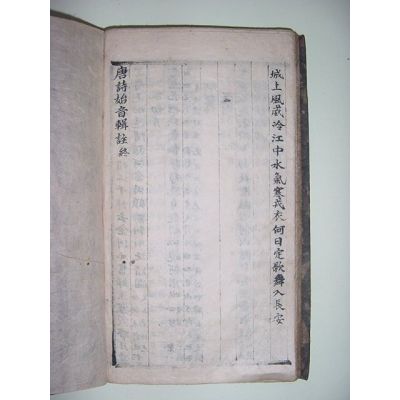 城上風威冷江中水氣寒戎衣何日定歌舞入長安
唐詩始音輯註終